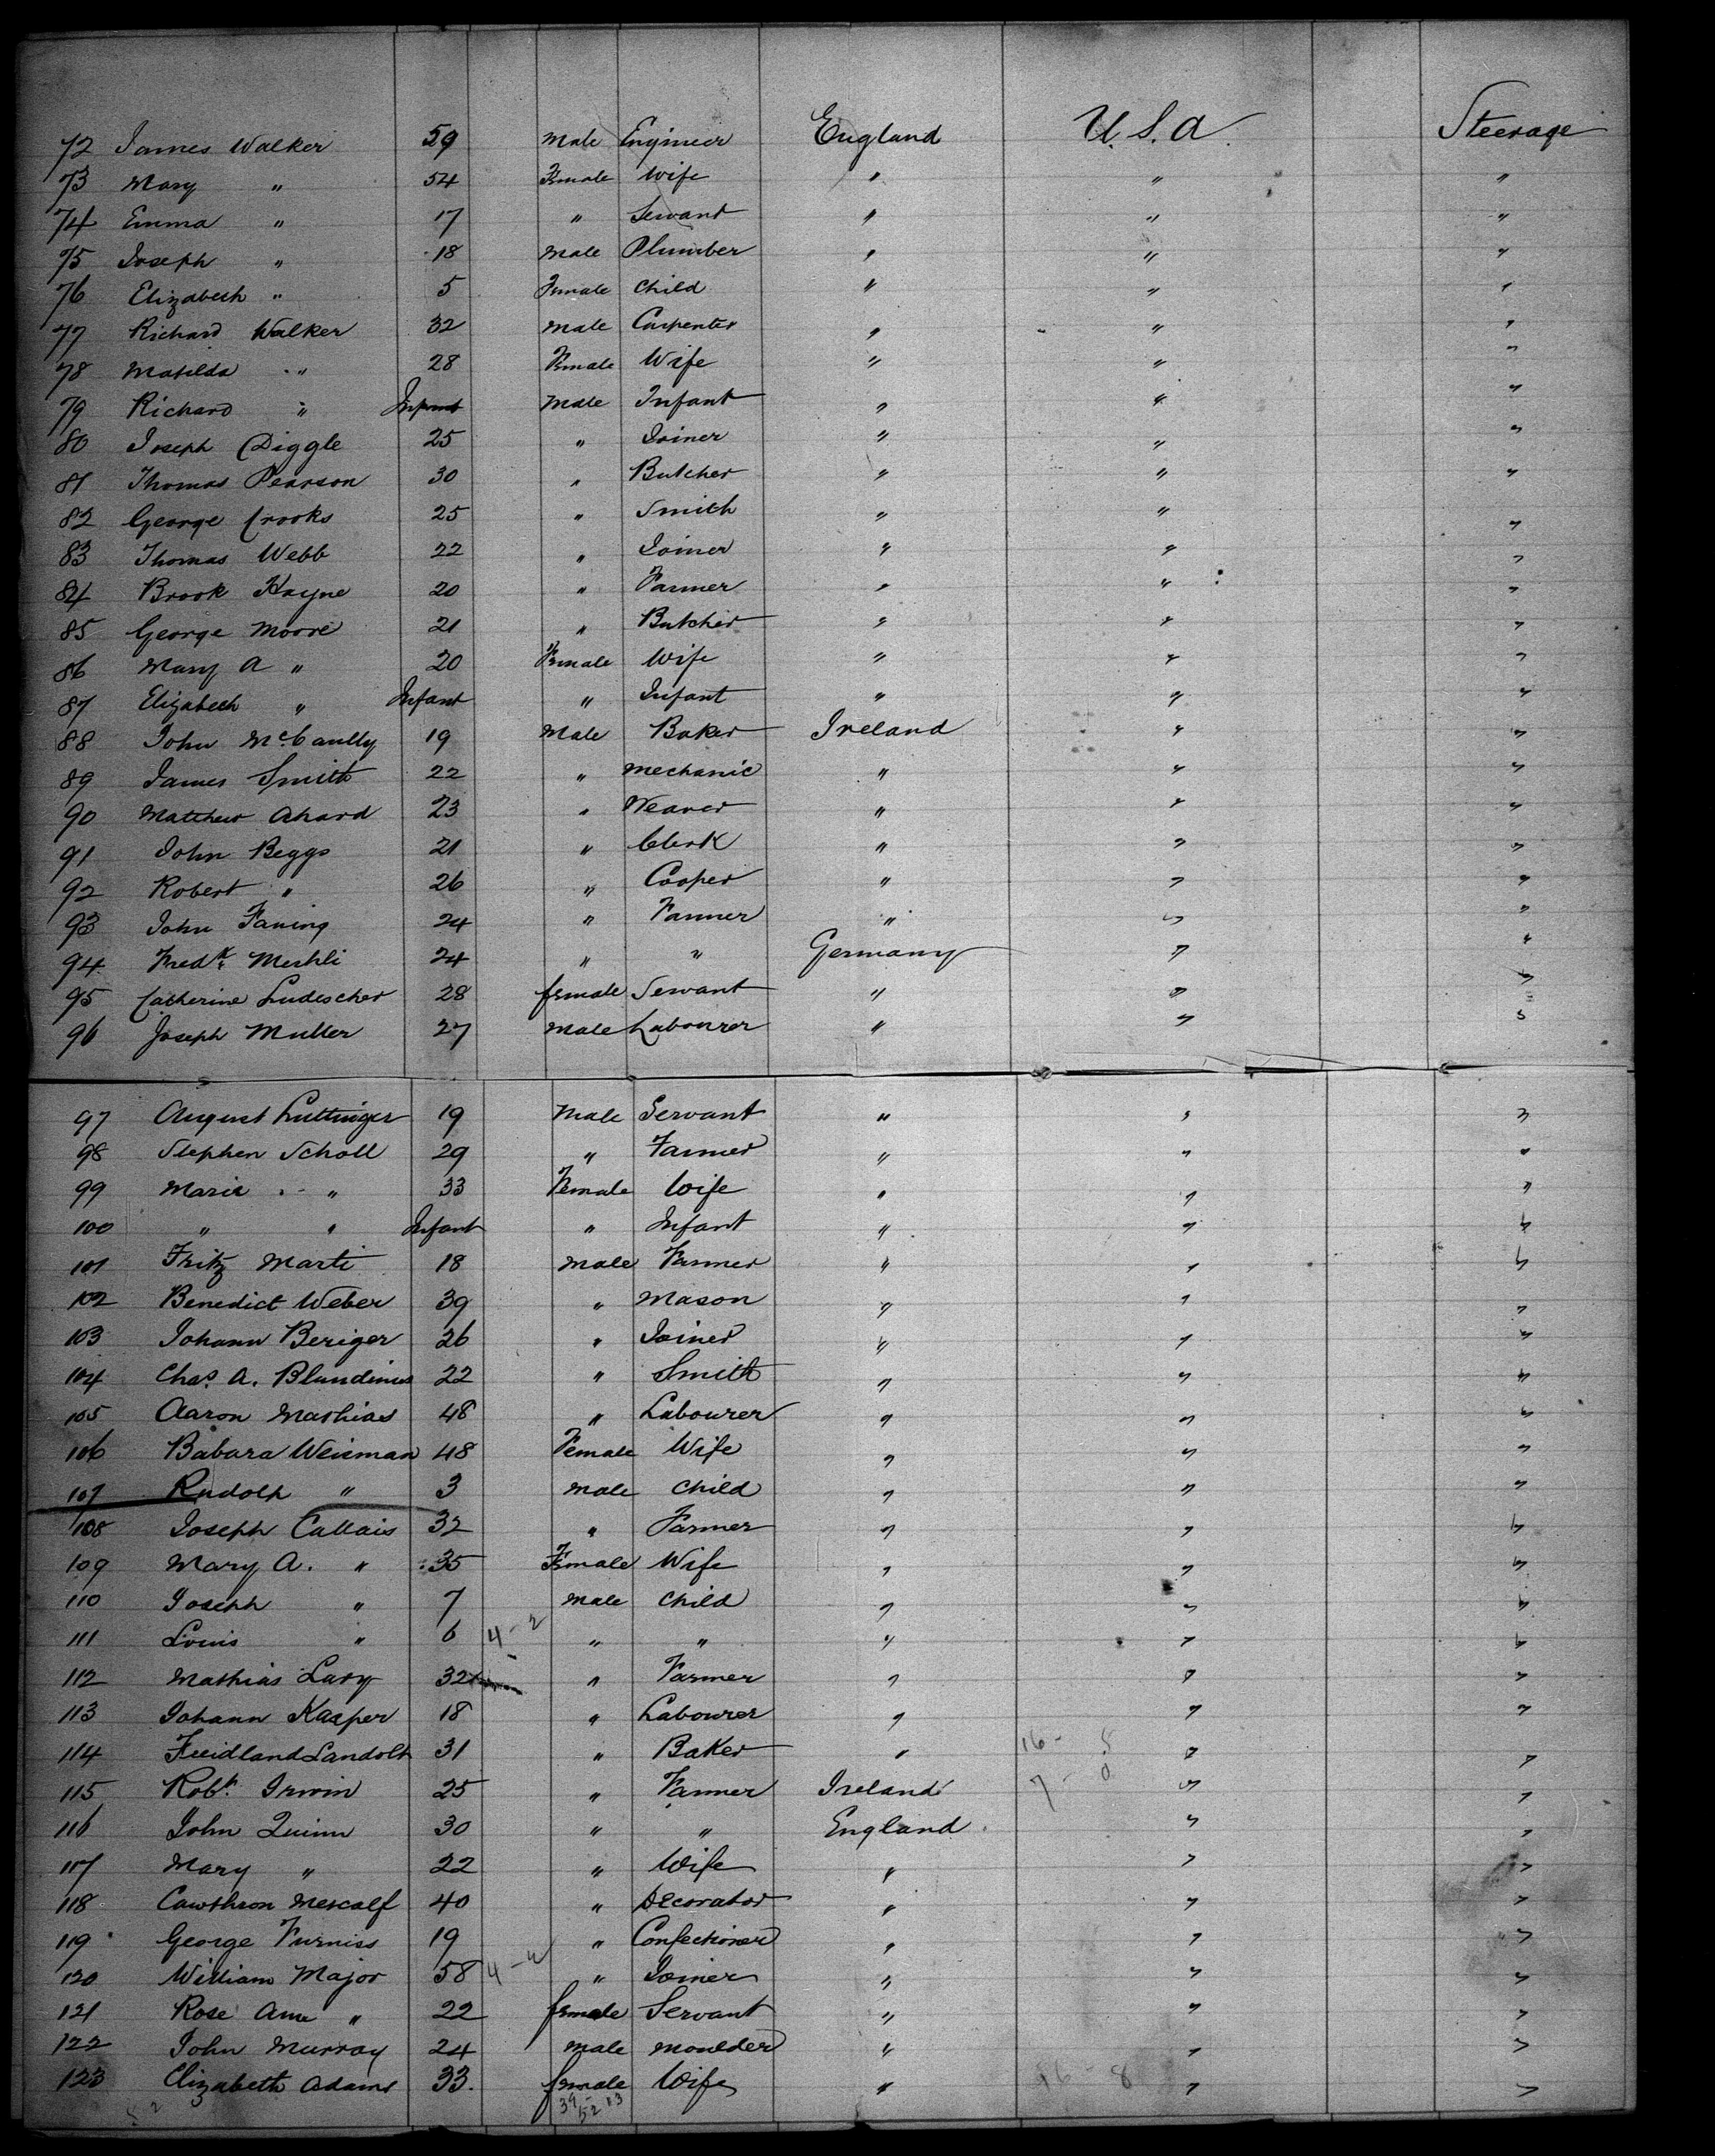 72 James Walker 59 Male Engineer England U.S.A. Steerage
73 Mary " 54 Female Wife " " "
74 Emma " 17 " Servant " " "
75 Joseph " 18 Male Plumber " " "
76 Elizabeth " 5 Female Child " " "
77 Richard Walker 32 Male Carpenter " " "
78 Matilda " 28 Female Wife " " "
79 Richard " Infant Male Infant " " "
80 Joseph Diggle 25 " Joiner " " "
81 Thomas Pearson 30 " Butcher " " "
82 George Crooks 25 " Smith " " "
83 Thomas Webb 22 " Joiner " " "
84 Brook Kayne 20 " Farmer " " "
85 George Moore 21 " Butcher " " "
86 Mary A " 20 Female Wife " " "
87 Elizabeth " Infant " Infant " " "
88 John McCaully 19 Male Baker Ireland " "
89 James Smith 22 " Mechanic " " "
90 Matthew Ahard 23 " Weaver " " "
91 John Beggs 21 " Clerk " " "
92 Robert " 26 " Cooper " " "
93 John Faning 24 " Farmer " " "
94 Fredk. Meshli 24 " " Germany " "
95 Catherine Ludescher 28 female Servant " " "
96 Joseph Muller 27 male Labourer " " "
97 August Luttinger 19 Male Servant " " "
98 Stephen Scholl 29 " Farmer " " "
99 Marie " 33 Female Wife " " "
100 " " Infant " Infant " " "
101 Fritz Marti 18 male Farmer " " "
102 Benedict Weber 39 " Mason " " "
103 Johann Beriger 26 " Joiner " " "
104 Chas. A. Blundinus 22 " Smith " " "
105 Aaron Mathias 48 " Labourer " " "
106 Babara Weisman 48 Female Wife " " "
107 Rudolh " 3 male Child " " "
108 Joseph Callais 32 " Farmer " " "
109 Mary A. " 35 Female Wife " " "
110 Joseph " 7 male Child " " "
111 Louis " 6 4-2 " " " " "
112 Mathias 32 " Farmer " " "
113 Johann Kasper 18 " Labourer " " "
114 Landolt 31 " Baker " 16- " "
115 Robt. Irwin 25 " Farmer Ireland 7- " "
116 John Quinn 30 " " England " "
117 Mary " 22 " Wife " " "
118 Cawthron Mescalf 40 " Decorator " " "
119 George Furniss 19 " Confectioner " " "
120 William Major 58 4- " Joiner " " "
121 Rose Ann " 22 female Servant " " "
122 John Murray 24 male moulder " " "
123 Elizabeth Adams 33 female Wife " 16-8 " "
52 39